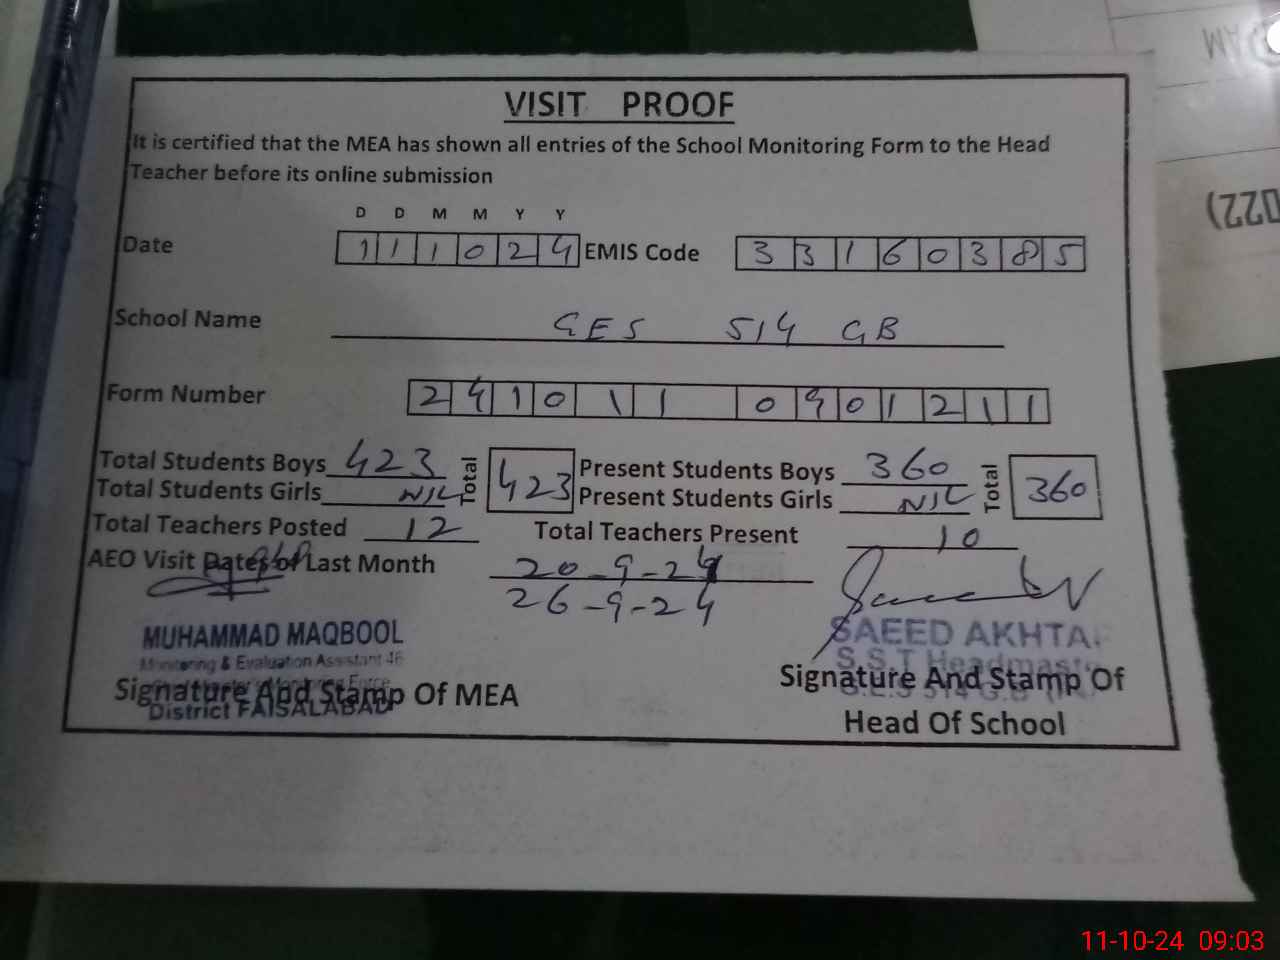 VISIT PROOF
It is certified that the MEA has shown all entries of the School Monitoring Form to the Head
Teacher before its online submission
D D M M Y Y
Date 1 1 1 0 2 4 EMIS Code 3 3 1 6 0 3 8 5
School Name GES 514 GB
Form Number 2 4 1 0 1 1 0 9 0 1 2 1 1
Total Students Boys 423 Total 423 Present Students Boys 360 Total 360
Total Students Girls NIL Present Students Girls NIL
Total Teachers Posted 12 Total Teachers Present 10
AEO Visit Dates of Last Month 20-9-24
26-9-24
MUHAMMAD MAQBOOL SAEED AKHTA
Monitoring & Evaluation Assistant 46 S.S.T Headmaste
Signature And Stamp Of MEA Signature And Stamp Of
District FAISALABAD Head Of School
022)
AM
11-10-24 09:03